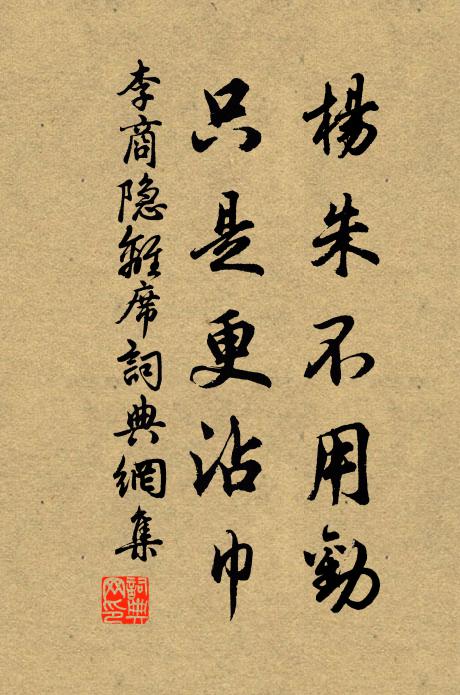 楊朱不用勸
只是更沾巾
李商隐離席詞典網集
詞典
网印